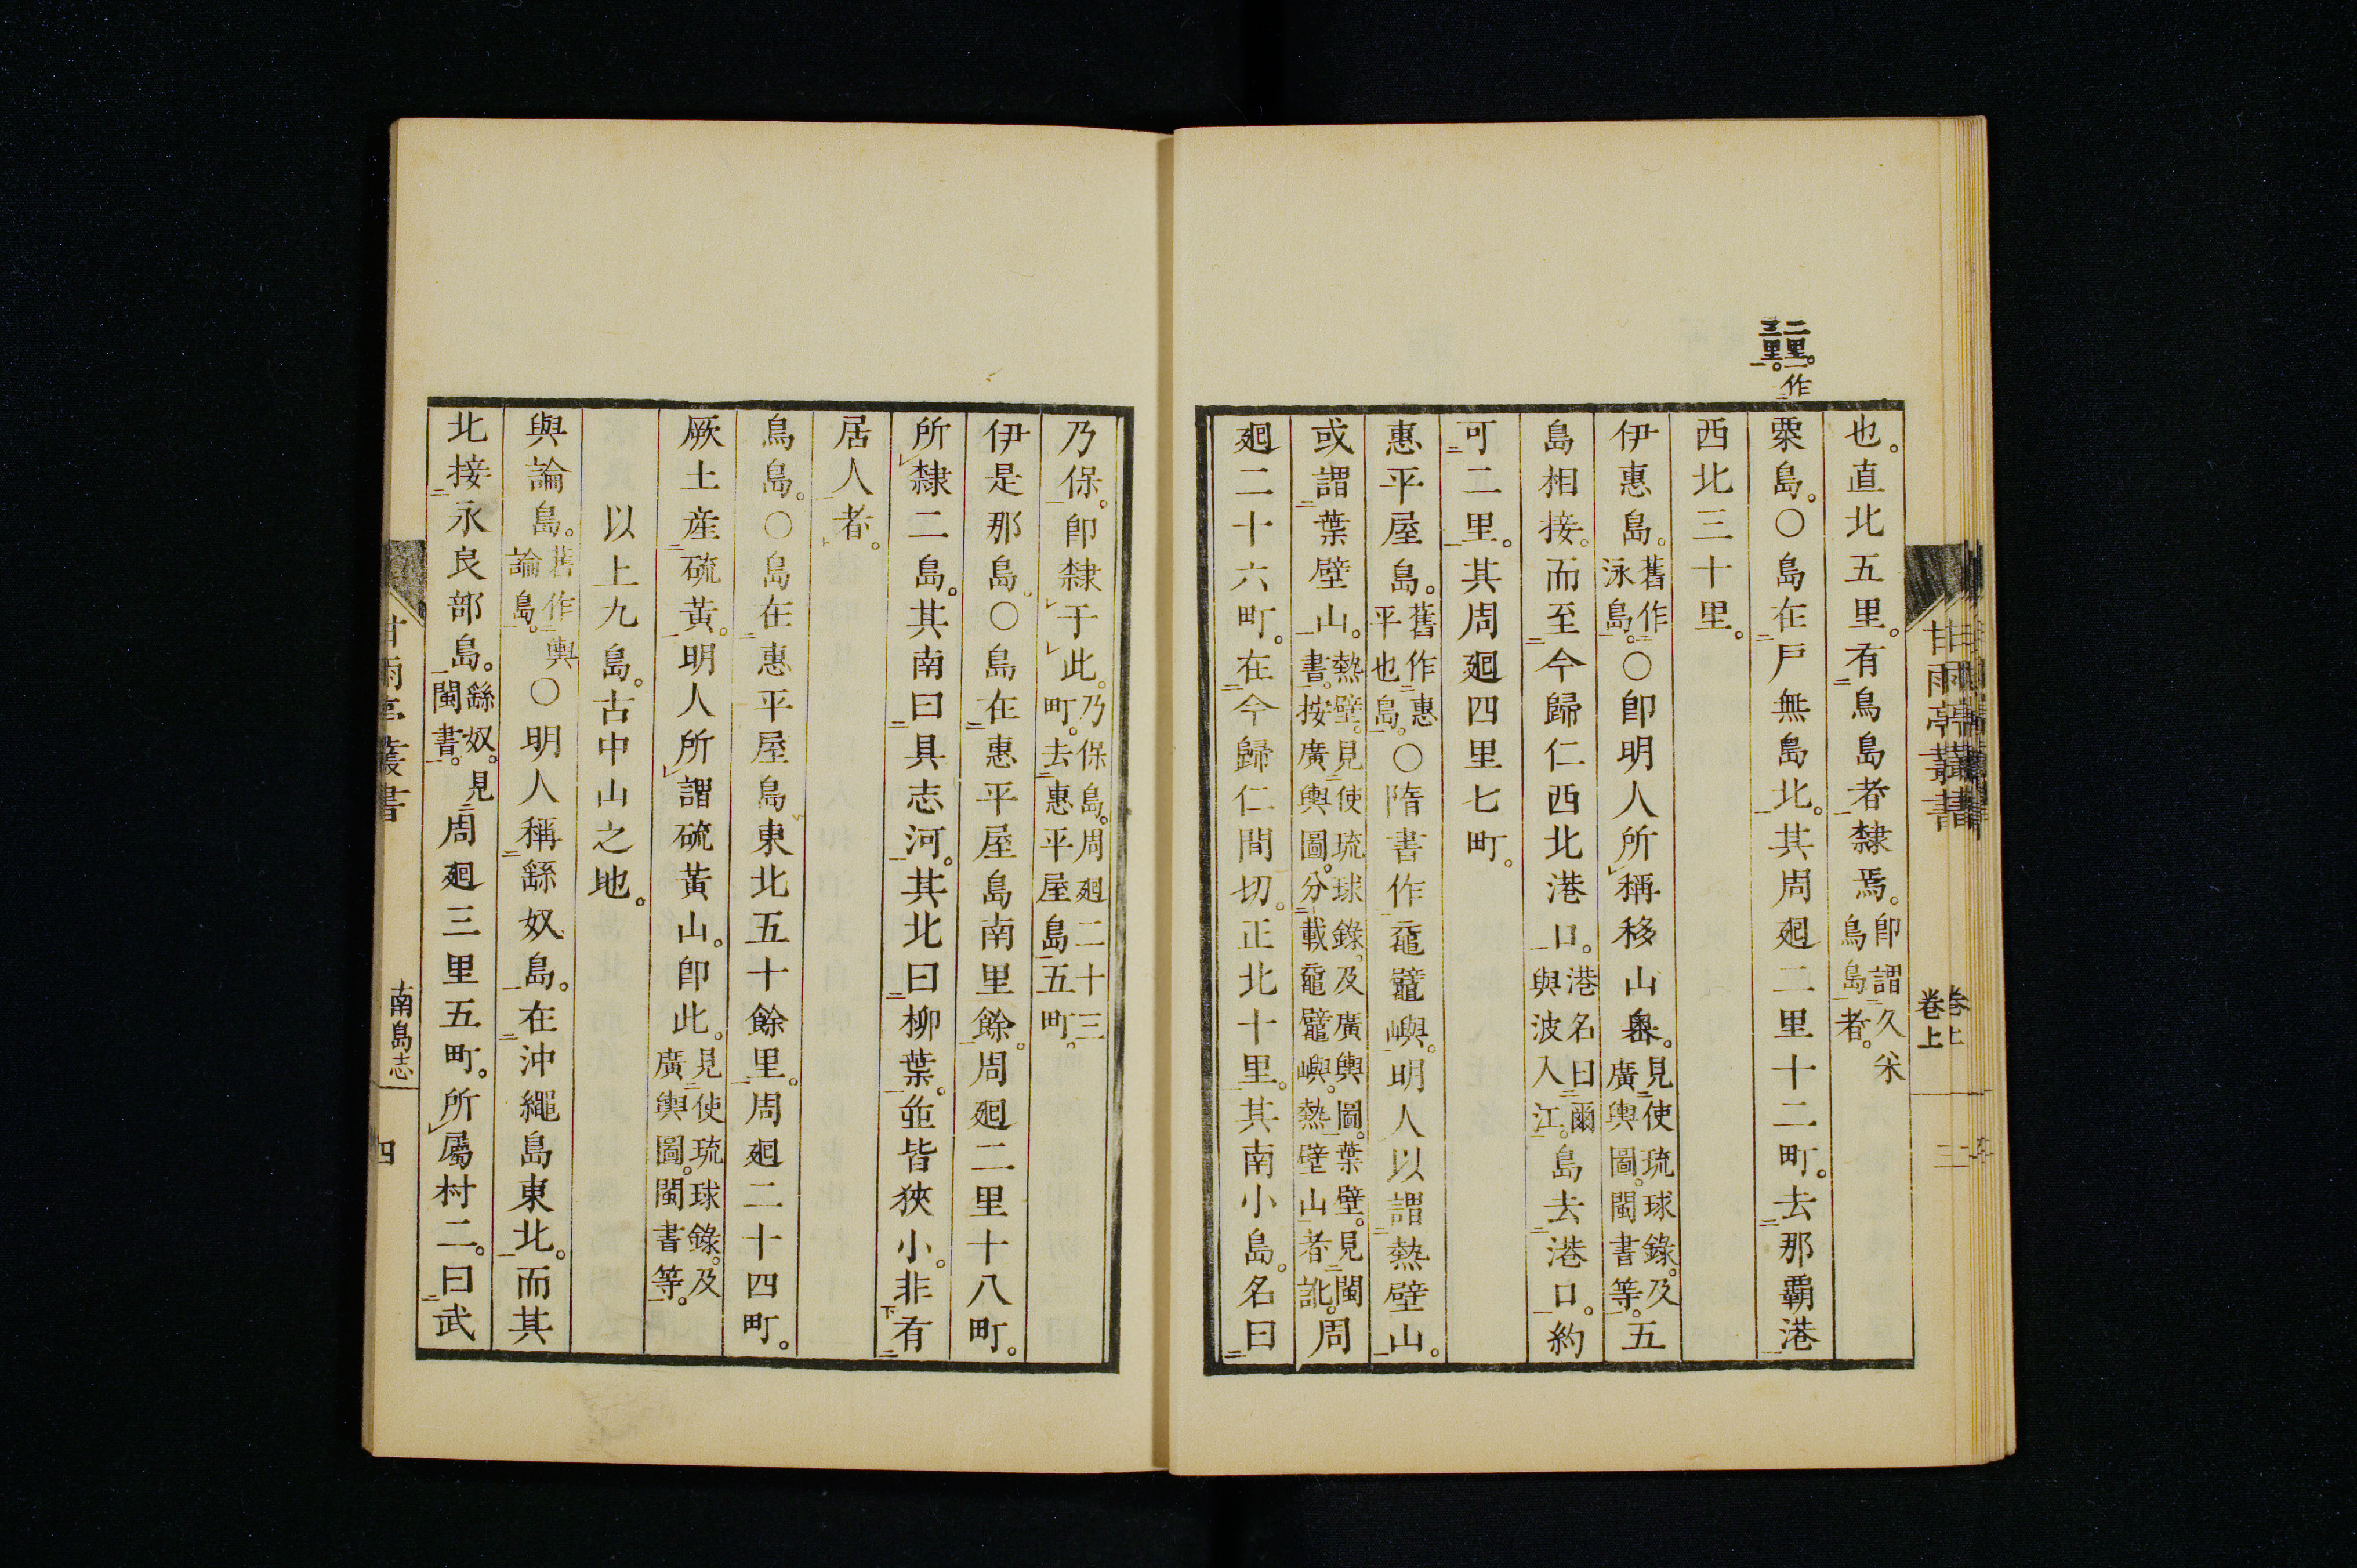 二里。作
三里。
也。直北五里。有鳥島者隸焉。即謂久米鳥島者。
粟島。○島在戸無島北。其周廻二里十二町。去那覇港
西北三十里。
伊惠島。舊作泳島。○即明人所稱移山奥。見使琉球錄。及廣輿圖。閩書等。五
島相接。而至今歸仁西北港口。港名曰爾與波入江。島去港口。約
可二里。其周廻四里七町。
惠平屋島。舊作惠平也島。○隋書作鼊嶼。明人以謂熱壁山。
或謂葉壁山。熱壁。見使琉球錄。及廣輿圖。葉壁。見閩書。按廣輿圖。分載鼊嶼。熱壁山者訛。周
廻二十六町。在今歸仁間切。正北十里。其南小島。名曰
甘雨亭叢書
卷上
三
乃保。即隸于此。乃保島。周廻二十三町。去惠平屋島五町。
伊是那島。○島在惠平屋島南里餘。周廻二里十八町。
所隸二島。其南曰具志河。其北曰柳葉。並皆狹小。非有
居人者。
鳥島。○島在惠平屋島東北五十餘里。周廻二十四町。
厥土産硫黃。明人所謂硫黃山。即此。見使琉球錄。及廣輿圖。閩書等。
以上九島。古中山之地。
與論島。舊作輿論島。○明人稱繇奴島。在沖繩島東北。而其
北接永良部島。繇奴。見閩書。周廻三里五町。所屬村二。曰武
甘雨亭叢書
南島志
四